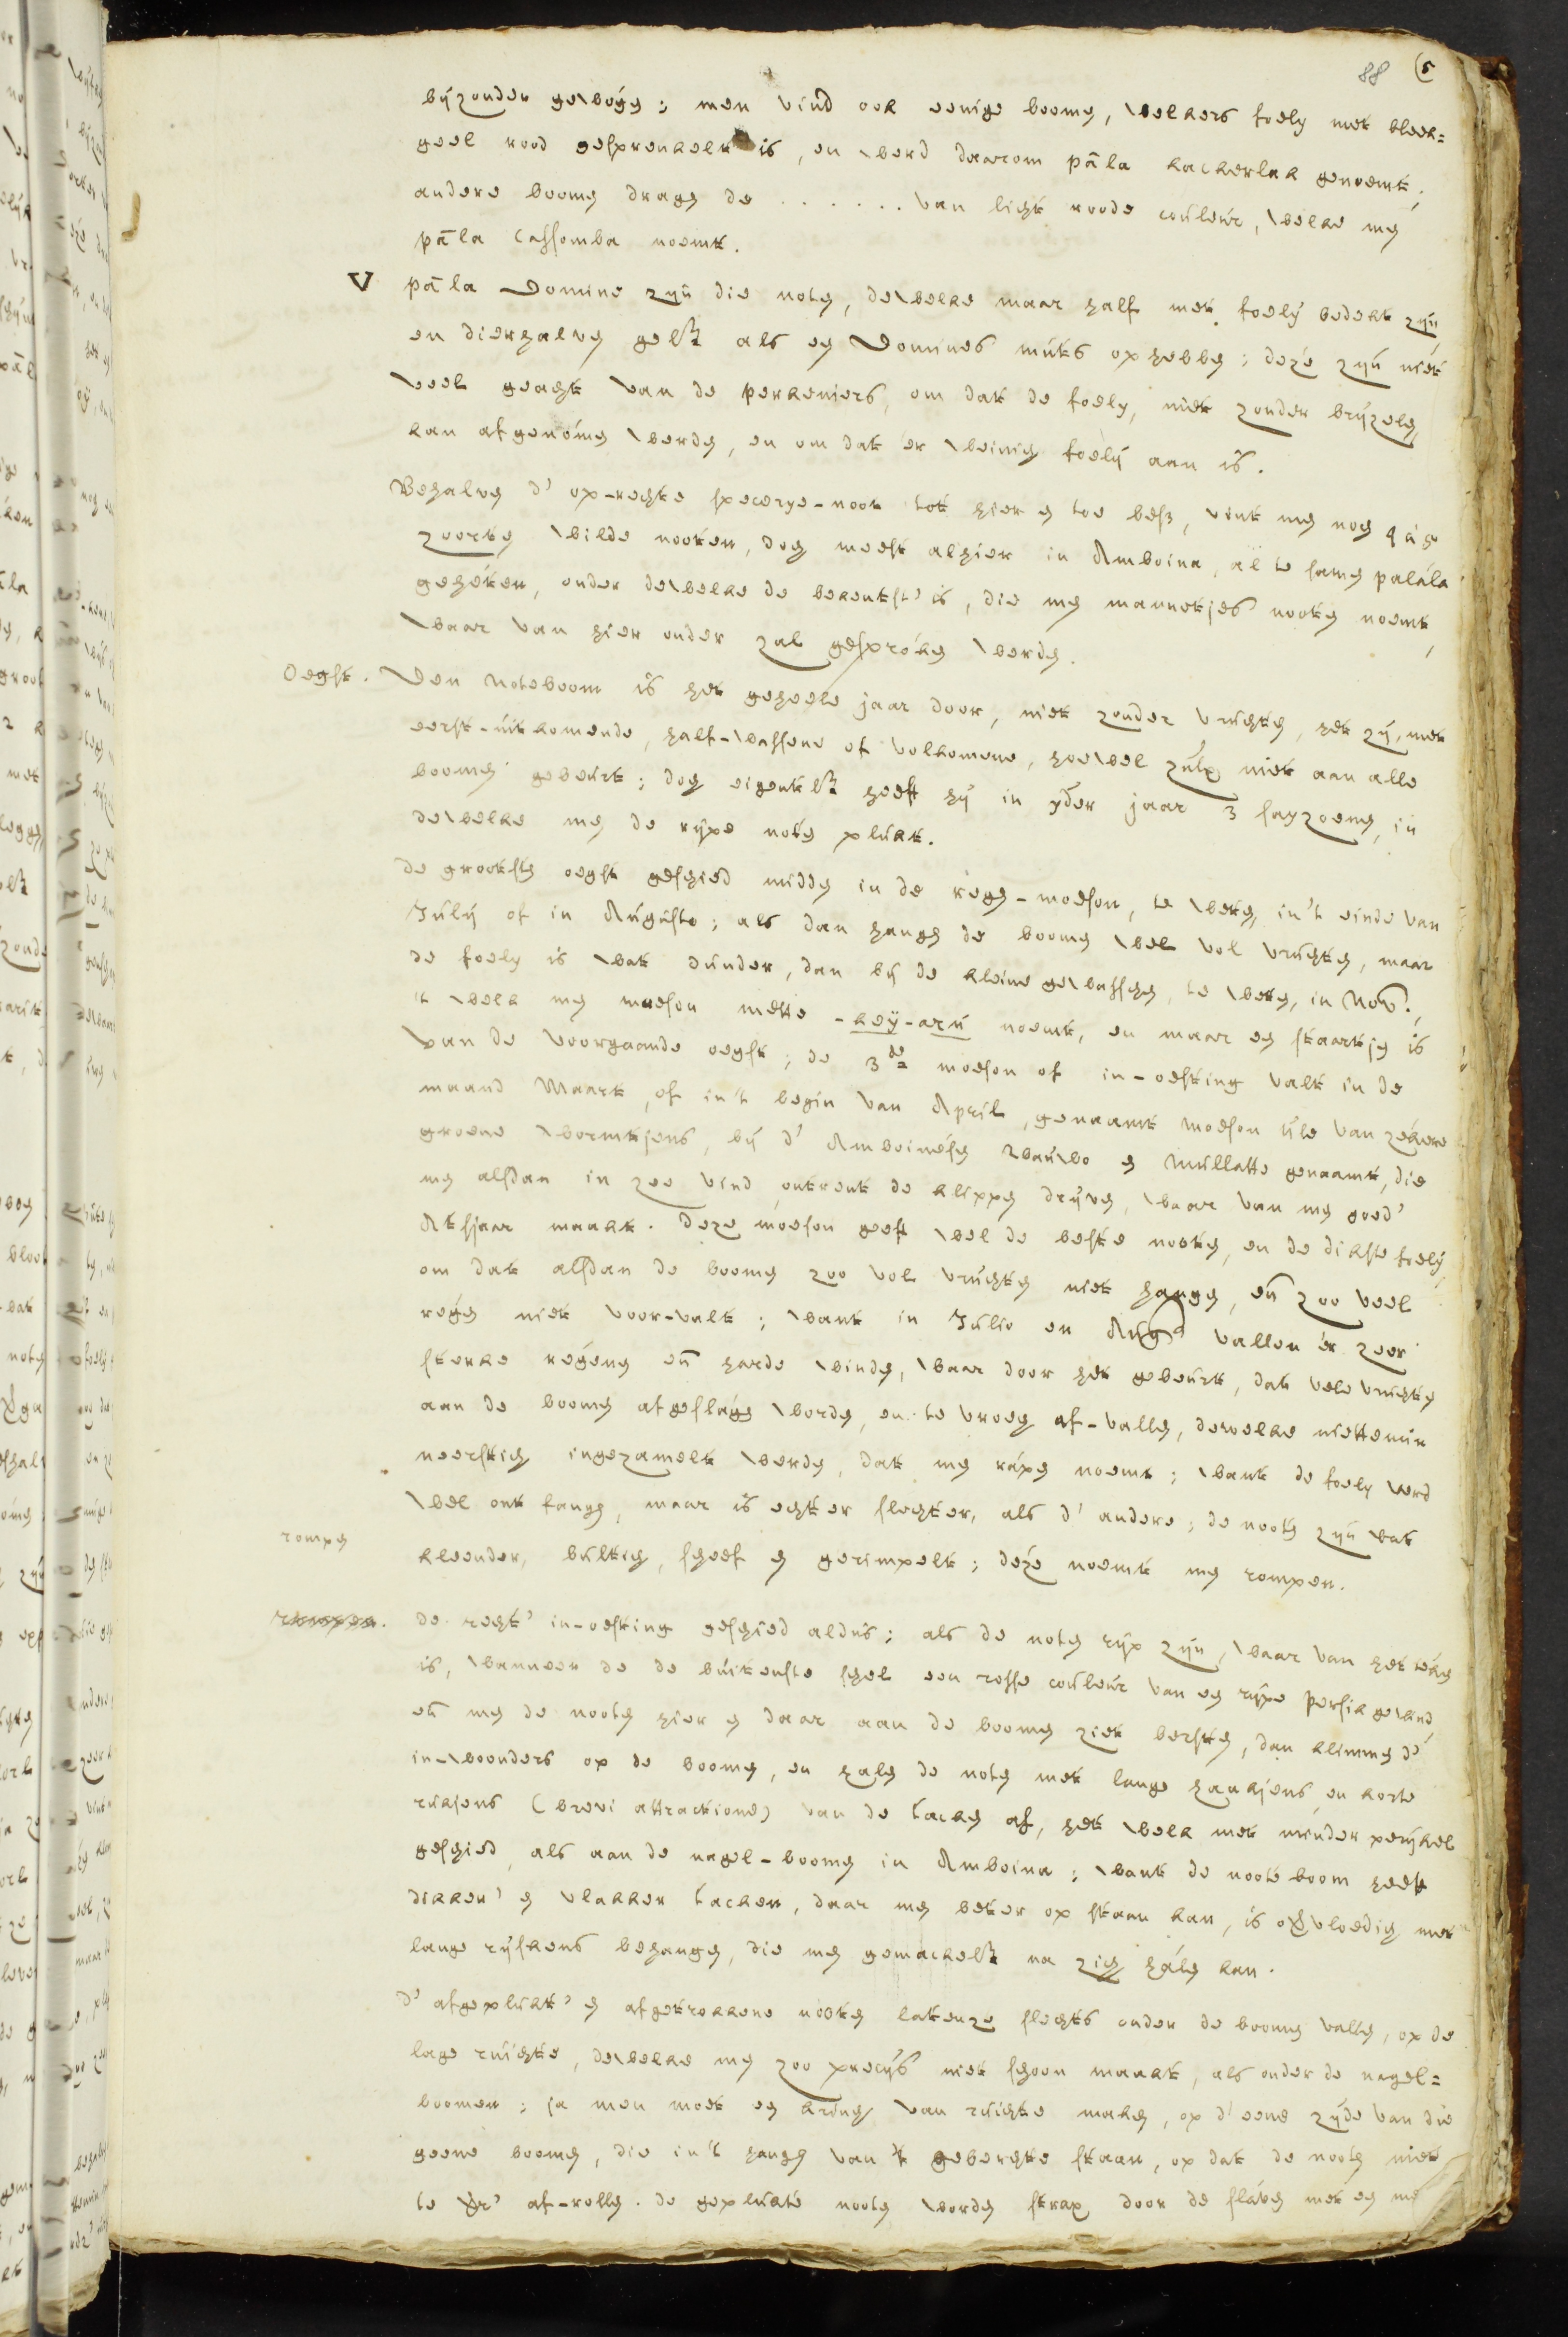 88 5
byzonder gewoge; men vind ook eenige boomen, welkers foely met bleek=
geel rood gesprenkelt is, en werd daarom pāla kackerlak genoemt;
andere boomen dragen de . . . . . . van licht roode couleur, welke men
pāla Cassomba noemt.
V pāla Domine zyn die noten, dewelke maar half met foely bedekt zyn,
en dierhalven gelyk als een Domines muts ophebben; deze zyn niet
veel geacht van de perkeniers, om dat de foely, niet zonder bryzelen
kan afgenomen werden, en om dat 'er weinich foely aan is.
Behalven d' op-rechte specerye-noot tot hier en toe bes, vint men nog 4 à 5
zoorten wilde nooten, dog meest alhier in Amboina, al te samen palala
geheten, onder dewelke de bekentst' is, die men mannetjes nooten noemt,
waar van hier onder zal gesproken werden.
Oegst. Den Noteboom is het geheele jaar door, niet zonder vruchten, het zy, met
eerst-uitkomende, half-wassene of volkomene, hoewel zulx niet aan alle
boomen gebeurt; dog eigentlyk heeft hy in yder jaar 3 sayzoenen, in
dewelke men de rype noten plukt.
de grootsten oegst geschied midden in de regen-moeson, te weten, in't einde van
July of in Augusto; als dan hangen de boomen wel vol vruchten, maar
de foely is wat dunder, dan by de kleine gewasschen, te weten, in Nov.,
't welk men moeson mette-key-aru noemt, en maar een staartjen is
van de voorgaande oegst; de 3de moeson of in-oesting valt in de
maand Maart, of in't begin van April, genaamt moeson ule van zekere
groene wormtjens, by d' Amboinesen wauwo en Mullatte genaamt, die
men alsdan in zee vind ontrent de klippen dryven, waar van men goed'
Atsjaar maakt. deze moeson geeft wel de beste nooten, en de dikste foely,
om dat alsdan de boomen zoo vol vruchten niet hangen, en zoo veel
regen niet voor-valt; want in Julio en Augo vallen 'er zeer
sterke regens en harde winden, waar door het gebeurt, dat vele vruchten
aan de boomen afgeslagen worden, en te vroeg af-vallen, derwelke niettemin
neerstich ingezamelt werden, dat men rapen noemt; want de foely werd
wel ontfangen, maar is echter slechter, als d' andere; de nooten zyn wat
rompen kleender, bultich, scheef en gerimpelt; deze noemt men rompen.
rompen. de recht' in-oesting geschied aldus; als de noten ryp zyn, waar van het teken
is, wanneer de de buitenste schel een rosse couleur van een rype Persik gewind,
en men de nooten hier en daar aan de boomen ziet bersten, dan klimmen d'
in-woonders op de boomen, en halen de noten met lange haakjens en korte
rukjens (brevi attractione) van de tacken af, het welk met minder perykel
geschied, als aan de nagel-boomen in Amboina; want de nooteboom heeft
dikker' en vlakker tacken, daar men beter op staan kan, is overvloedich met
lange ryskens behangen, die men gemackelyk na zich halen kan.
d' afgeplukt' en afgetrokkene nooten latenze slechts onder de boomen vallen, op de
lage ruichte, dewelke men zoo precys niet schoon maakt, als onder de nagel=
boomen; ja men moet een kring van ruichte maken, op d' eene zyde van die
geene boomen, die in't hangen van't geberchte staan, op dat de nooten niet
te ver' af-rollen. de geplukte nooten worden strax door de slaven met een me